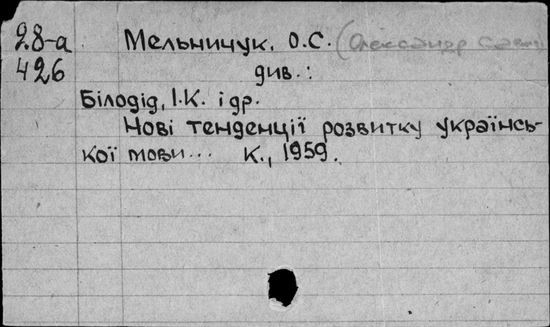 28-а Мельничук, О.С. (Олександр
426 див.:
Білодід, І.К. і др.
Нові тенденції розвитку українсь-
кої мови... К., 1959.